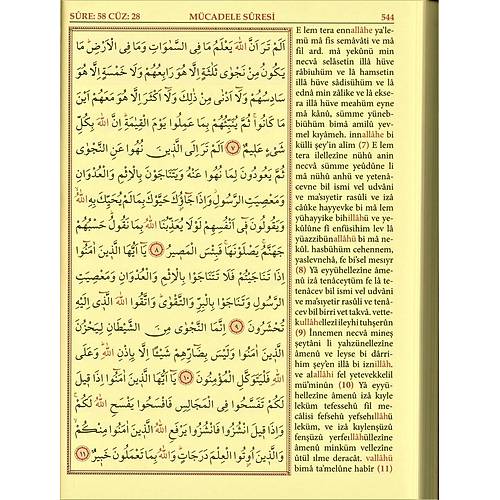 SÛRE: 58 CÜZ: 28
MÜCADELE SÛRESİ
544
اَلَمْ تَرَ اَنَّ اللّٰهَ يَعْلَمُ مَا فِي السَّمٰوَاتِ وَمَا فِي الْاَرْضِۜ مَا
يَكُونُ مِنْ نَجْوٰى ثَلٰثَةٍ اِلَّا هُوَ رَابِعُهُمْ وَلَا خَمْسَةٍ اِلَّا هُوَ
سَادِسُهُمْ وَلَٓا اَدْنٰى مِنْ ذٰلِكَ وَلَٓا اَكْثَرَ اِلَّا هُوَ مَعَهُمْ اَيْنَ
مَا كَانُواۚ ثُمَّ يُنَبِّئُهُمْ بِمَا عَمِلُوا يَوْمَ الْقِيٰمَةِۜ اِنَّ اللّٰهَ بِكُلِّ
شَيْءٍ عَل۪يمٌ ﴿٧﴾ اَلَمْ تَرَ اِلَى الَّذ۪ينَ نُهُوا عَنِ النَّجْوٰى
ثُمَّ يَعُودُونَ لِمَا نُهُوا عَنْهُ وَيَتَنَاجَوْنَ بِالْاِثْمِ وَالْعُدْوَانِ
وَمَعْصِيَتِ الرَّسُولِۘ وَاِذَا جَٓاؤُ۫كَ حَيَّوْكَ بِمَا لَمْ يُحَيِّكَ بِهِ اللّٰهُۙ
وَيَقُولُونَ ف۪ٓي اَنْفُسِهِمْ لَوْلَا يُعَذِّبُنَا اللّٰهُ بِمَا نَقُولُۜ حَسْبُهُمْ
جَهَنَّمُۚ يَصْلَوْنَهَاۚ فَبِئْسَ الْمَص۪يرُ ﴿٨﴾ يَٓا اَيُّهَا الَّذ۪ينَ اٰمَنُٓوا
اِذَا تَنَاجَيْتُمْ فَلَا تَتَنَاجَوْا بِالْاِثْمِ وَالْعُدْوَانِ وَمَعْصِيَتِ
الرَّسُولِ وَتَنَاجَوْا بِالْبِرِّ وَالتَّقْوٰىۜ وَاتَّقُوا اللّٰهَ الَّذ۪ٓي اِلَيْهِ
تُحْشَرُونَ ﴿٩﴾ اِنَّمَا النَّجْوٰى مِنَ الشَّيْطَانِ لِيَحْزُنَ
الَّذ۪ينَ اٰمَنُوا وَلَيْسَ بِضَٓارِّهِمْ شَيْـًٔا اِلَّا بِاِذْنِ اللّٰهِۜ وَعَلَى
اللّٰهِ فَلْيَتَوَكَّلِ الْمُؤْمِنُونَ ﴿١٠﴾ يَٓا اَيُّهَا الَّذ۪ينَ اٰمَنُٓوا اِذَا ق۪يلَ
لَكُمْ تَفَسَّحُوا فِي الْمَجَالِسِ فَافْسَحُوا يَفْسَحِ اللّٰهُ لَكُمْۚ
وَاِذَا ق۪يلَ انْشُزُوا فَانْشُزُوا يَرْفَعِ اللّٰهُ الَّذ۪ينَ اٰمَنُوا مِنْكُمْۙ
وَالَّذ۪ينَ اُو۫تُوا الْعِلْمَ دَرَجَاتٍۜ وَاللّٰهُ بِمَا تَعْمَلُونَ خَب۪يرٌ ﴿١١﴾
E lem tera ennallâhe ya'le-
mü mâ fis semâvâti ve mâ
fil ard. mâ yekûnü min
necvâ selâsetin illâ hüve
râbiuhüm ve lâ hamsetin
illâ hüve sâdisühüm ve lâ
ednâ min zâlike ve lâ ekse-
ra illâ hüve meahüm eyne
mâ kânû, sümme yüneb-
biühüm bimâ amilû yev-
mel kıyâmeh. innallâhe bi
külli şey'in alîm (7) E lem
tera ilellezîne nühû anin
necvâ sümme yeûdûne li
mâ nühû anhü ve yetenâ-
cevne bil ismi vel udvâni
ve ma'sıyetir rasûli ve izâ
câûke hayyevke bi mâ lem
yühayyike bihillâhü ve ye-
kûlûne fî enfüsihim lev lâ
yüazzibünallâhü bi mâ ne-
kûl. hasbühüm cehennem,
yaslevnehâ, fe bi'sel mesıyr
(8) Yâ eyyühellezîne âme-
nû izâ tenâceytüm fe lâ te-
tenâcev bil ismi vel udvâni
ve ma'sıyetir rasûli ve tenâ-
cev bil birri vet takvâ. vette-
kullâhellezî ileyhi tuhşerûn
(9) İnnemen necvâ mineş
şeytâni li yahzünellezîne
âmenû ve leyse bi dârri-
him şey'en illâ bi iznillâh.
ve alallâhi fel yetevekkelil
mü'minûn (10) Yâ eyyü-
hellezîne âmenû izâ kıyle
leküm tefessehû fil me-
câlisi fefsehû yefsehıllâhü
leküm, ve izâ kıylenşüzû
fenşüzû yerfeıllâhüllezîne
âmenû minküm vellezîne
ûtül ılme deracât. vallâhü
bimâ ta'melûne habîr (11)